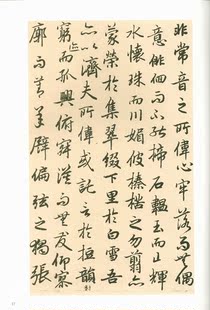 非常音之所偉心牢落而無偶
意徘徊而不能揥石韞玉而山輝
水懷珠而川媚彼榛楛之勿翦亦
蒙榮於集翠綴下里於白雪吾
亦以濟夫所偉或託言於短韻對
窮迹而孤興俯寂漠而無友仰寥
廓而莫承譬偏弦之獨張